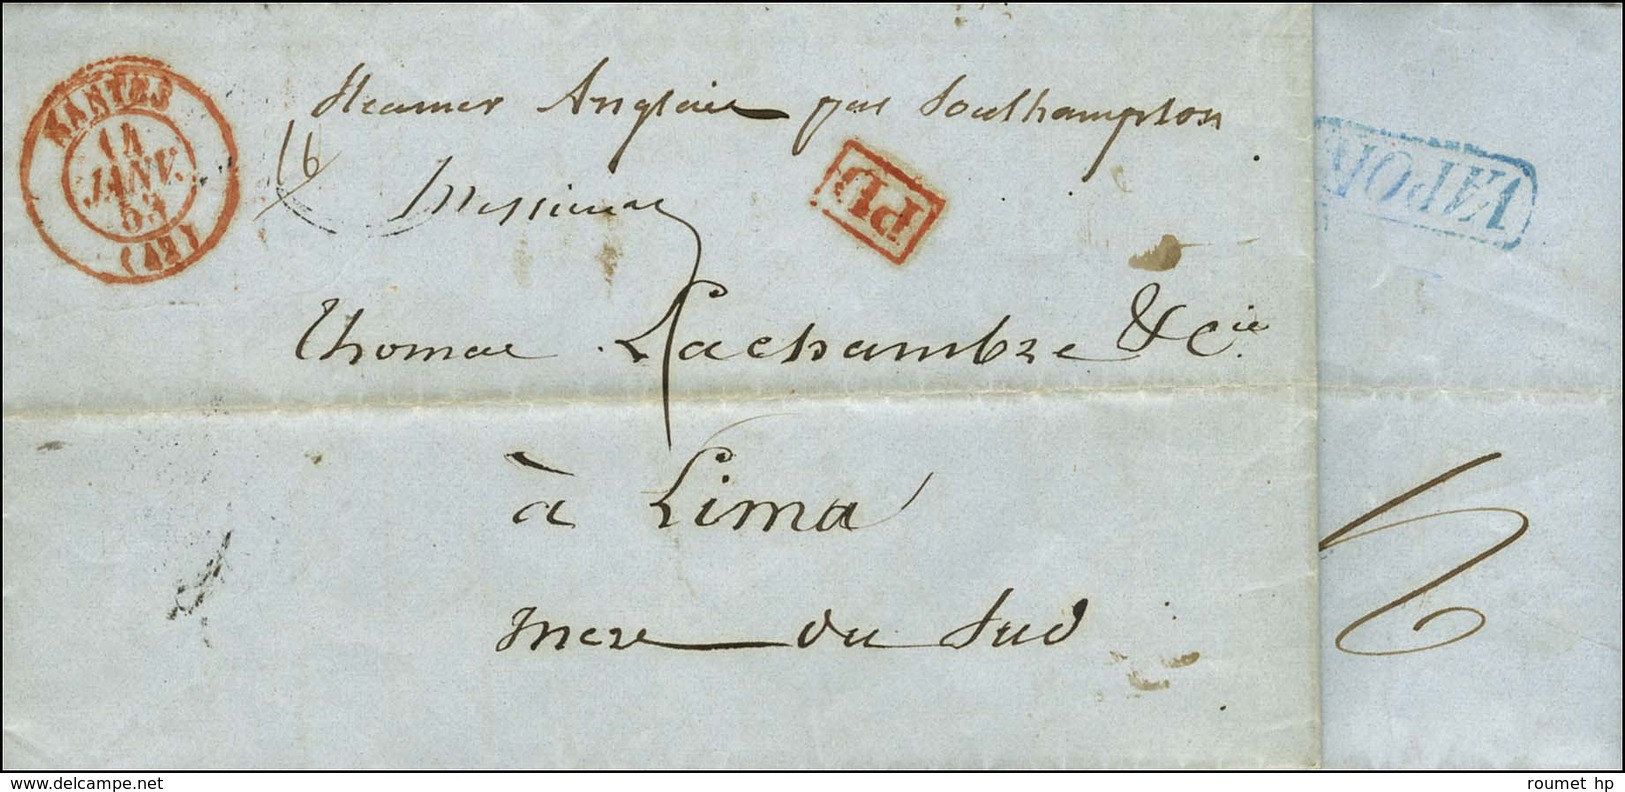 NANTES
14
JANV.
53
(42)
Steamer Anglais par Southampton
16
Messieurs
PD
VAPOR
Thomas Lachambre & Cie
à Lima
mer du Sud
www.delcampe.net
roumet hp